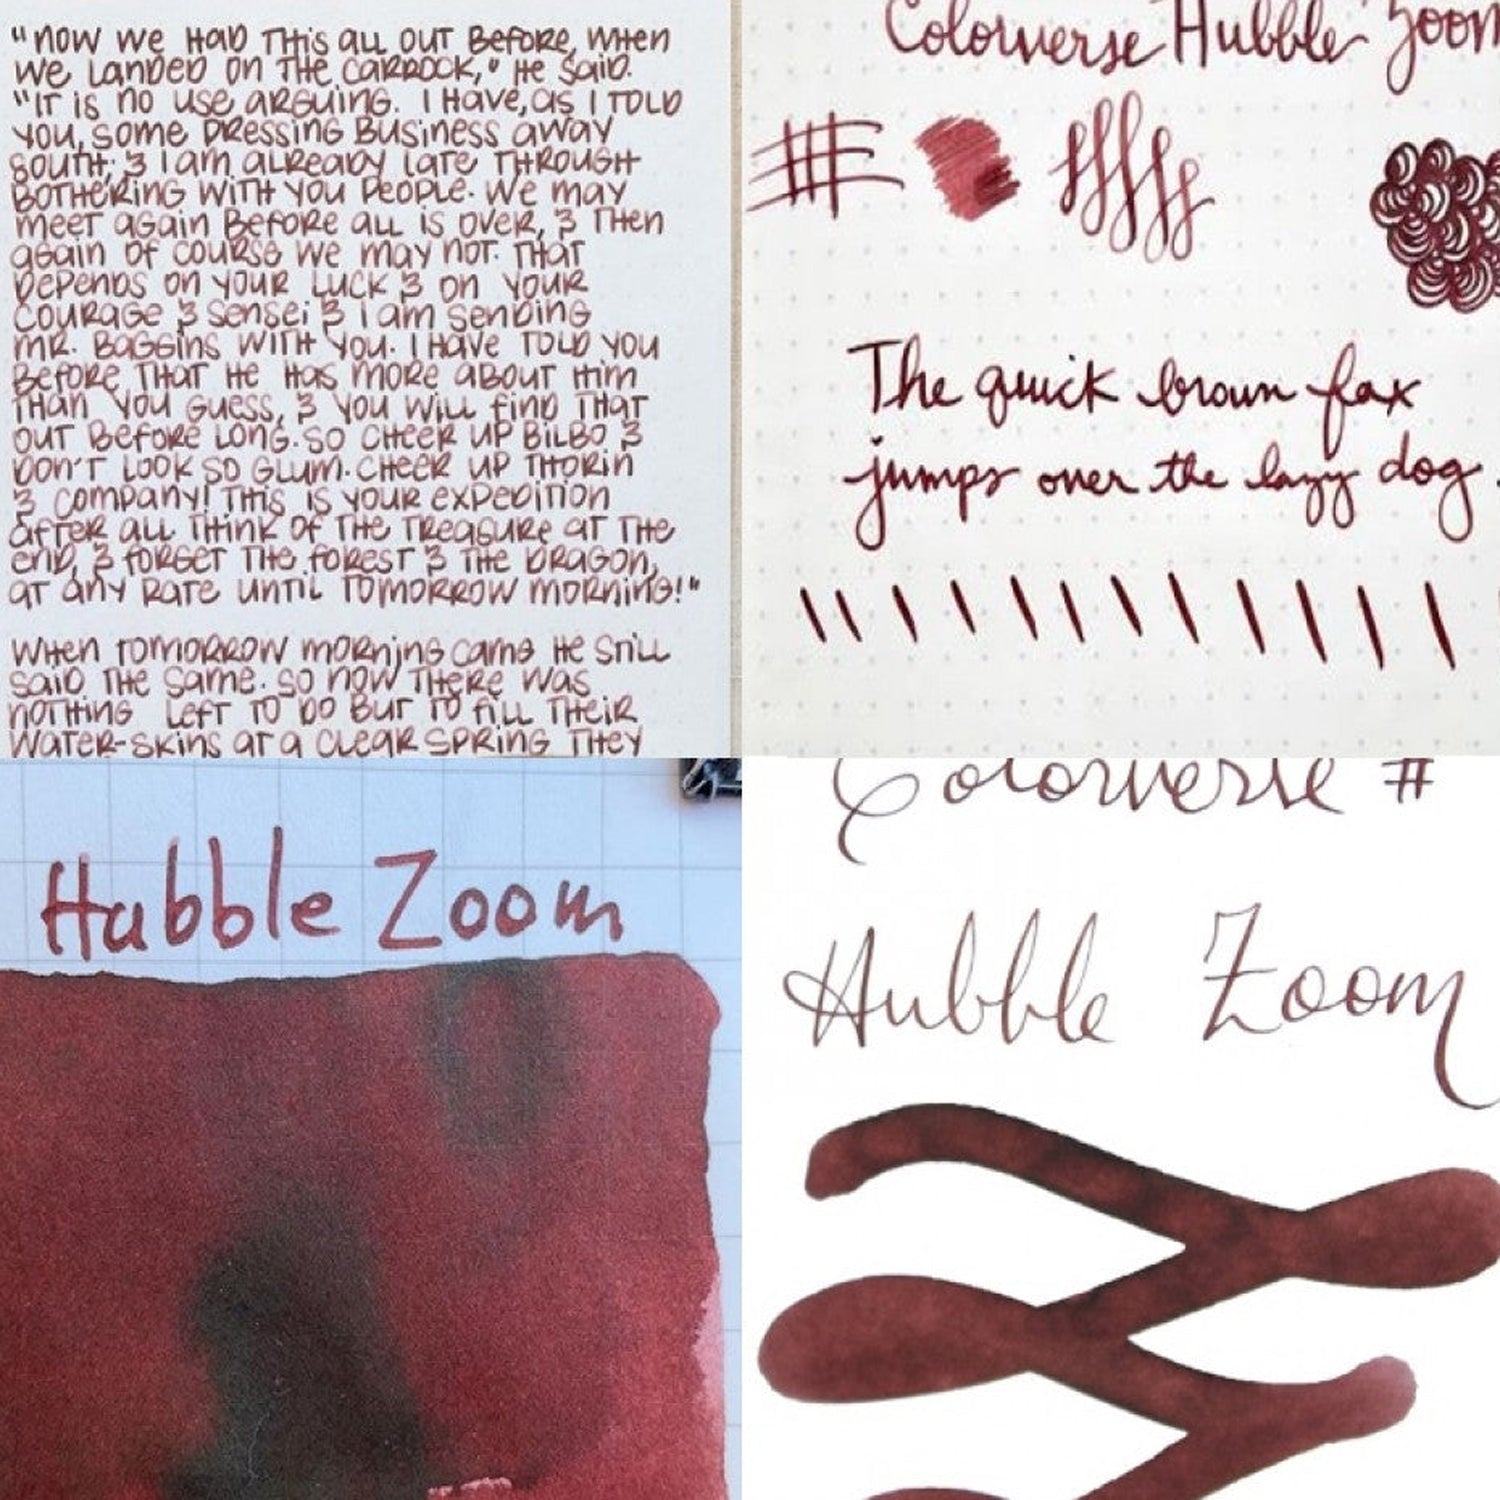 "NOW WE HAD THIS ALL OUT BEFORE, WHEN
WE LANDED ON THE CARROCK," HE SAID.
"IT IS NO USE ARGUING. I HAVE, AS I TOLD
YOU, SOME PRESSING BUSINESS AWAY
SOUTH; & I AM ALREADY LATE THROUGH
BOTHERING WITH YOU PEOPLE. WE MAY
MEET AGAIN BEFORE ALL IS OVER, & THEN
AGAIN OF COURSE WE MAY NOT. THAT
DEPENDS ON YOUR LUCK & ON YOUR
COURAGE & SENSE; & I AM SENDING
MR. BAGGINS WITH YOU. I HAVE TOLD YOU
BEFORE THAT HE HAS MORE ABOUT HIM
THAN YOU GUESS, & YOU WILL FIND THAT
OUT BEFORE LONG. SO CHEER UP BILBO &
DON'T LOOK SO GLUM. CHEER UP THORIN
& COMPANY! THIS IS YOUR EXPEDITION
AFTER ALL. THINK OF THE TREASURE AT THE
END, & FORGET THE FOREST & THE DRAGON,
AT ANY RATE UNTIL TOMORROW MORNING!"
WHEN TOMORROW MORNING CAME HE STILL
SAID THE SAME. SO NOW THERE WAS
NOTHING LEFT TO DO BUT TO FILL THEIR
WATER-SKINS AT A CLEAR SPRING THEY
Colorverse Hubble Zoom
The quick brown fox
jumps over the lazy dog.
Hubble Zoom
Colorverse #
Hubble Zoom